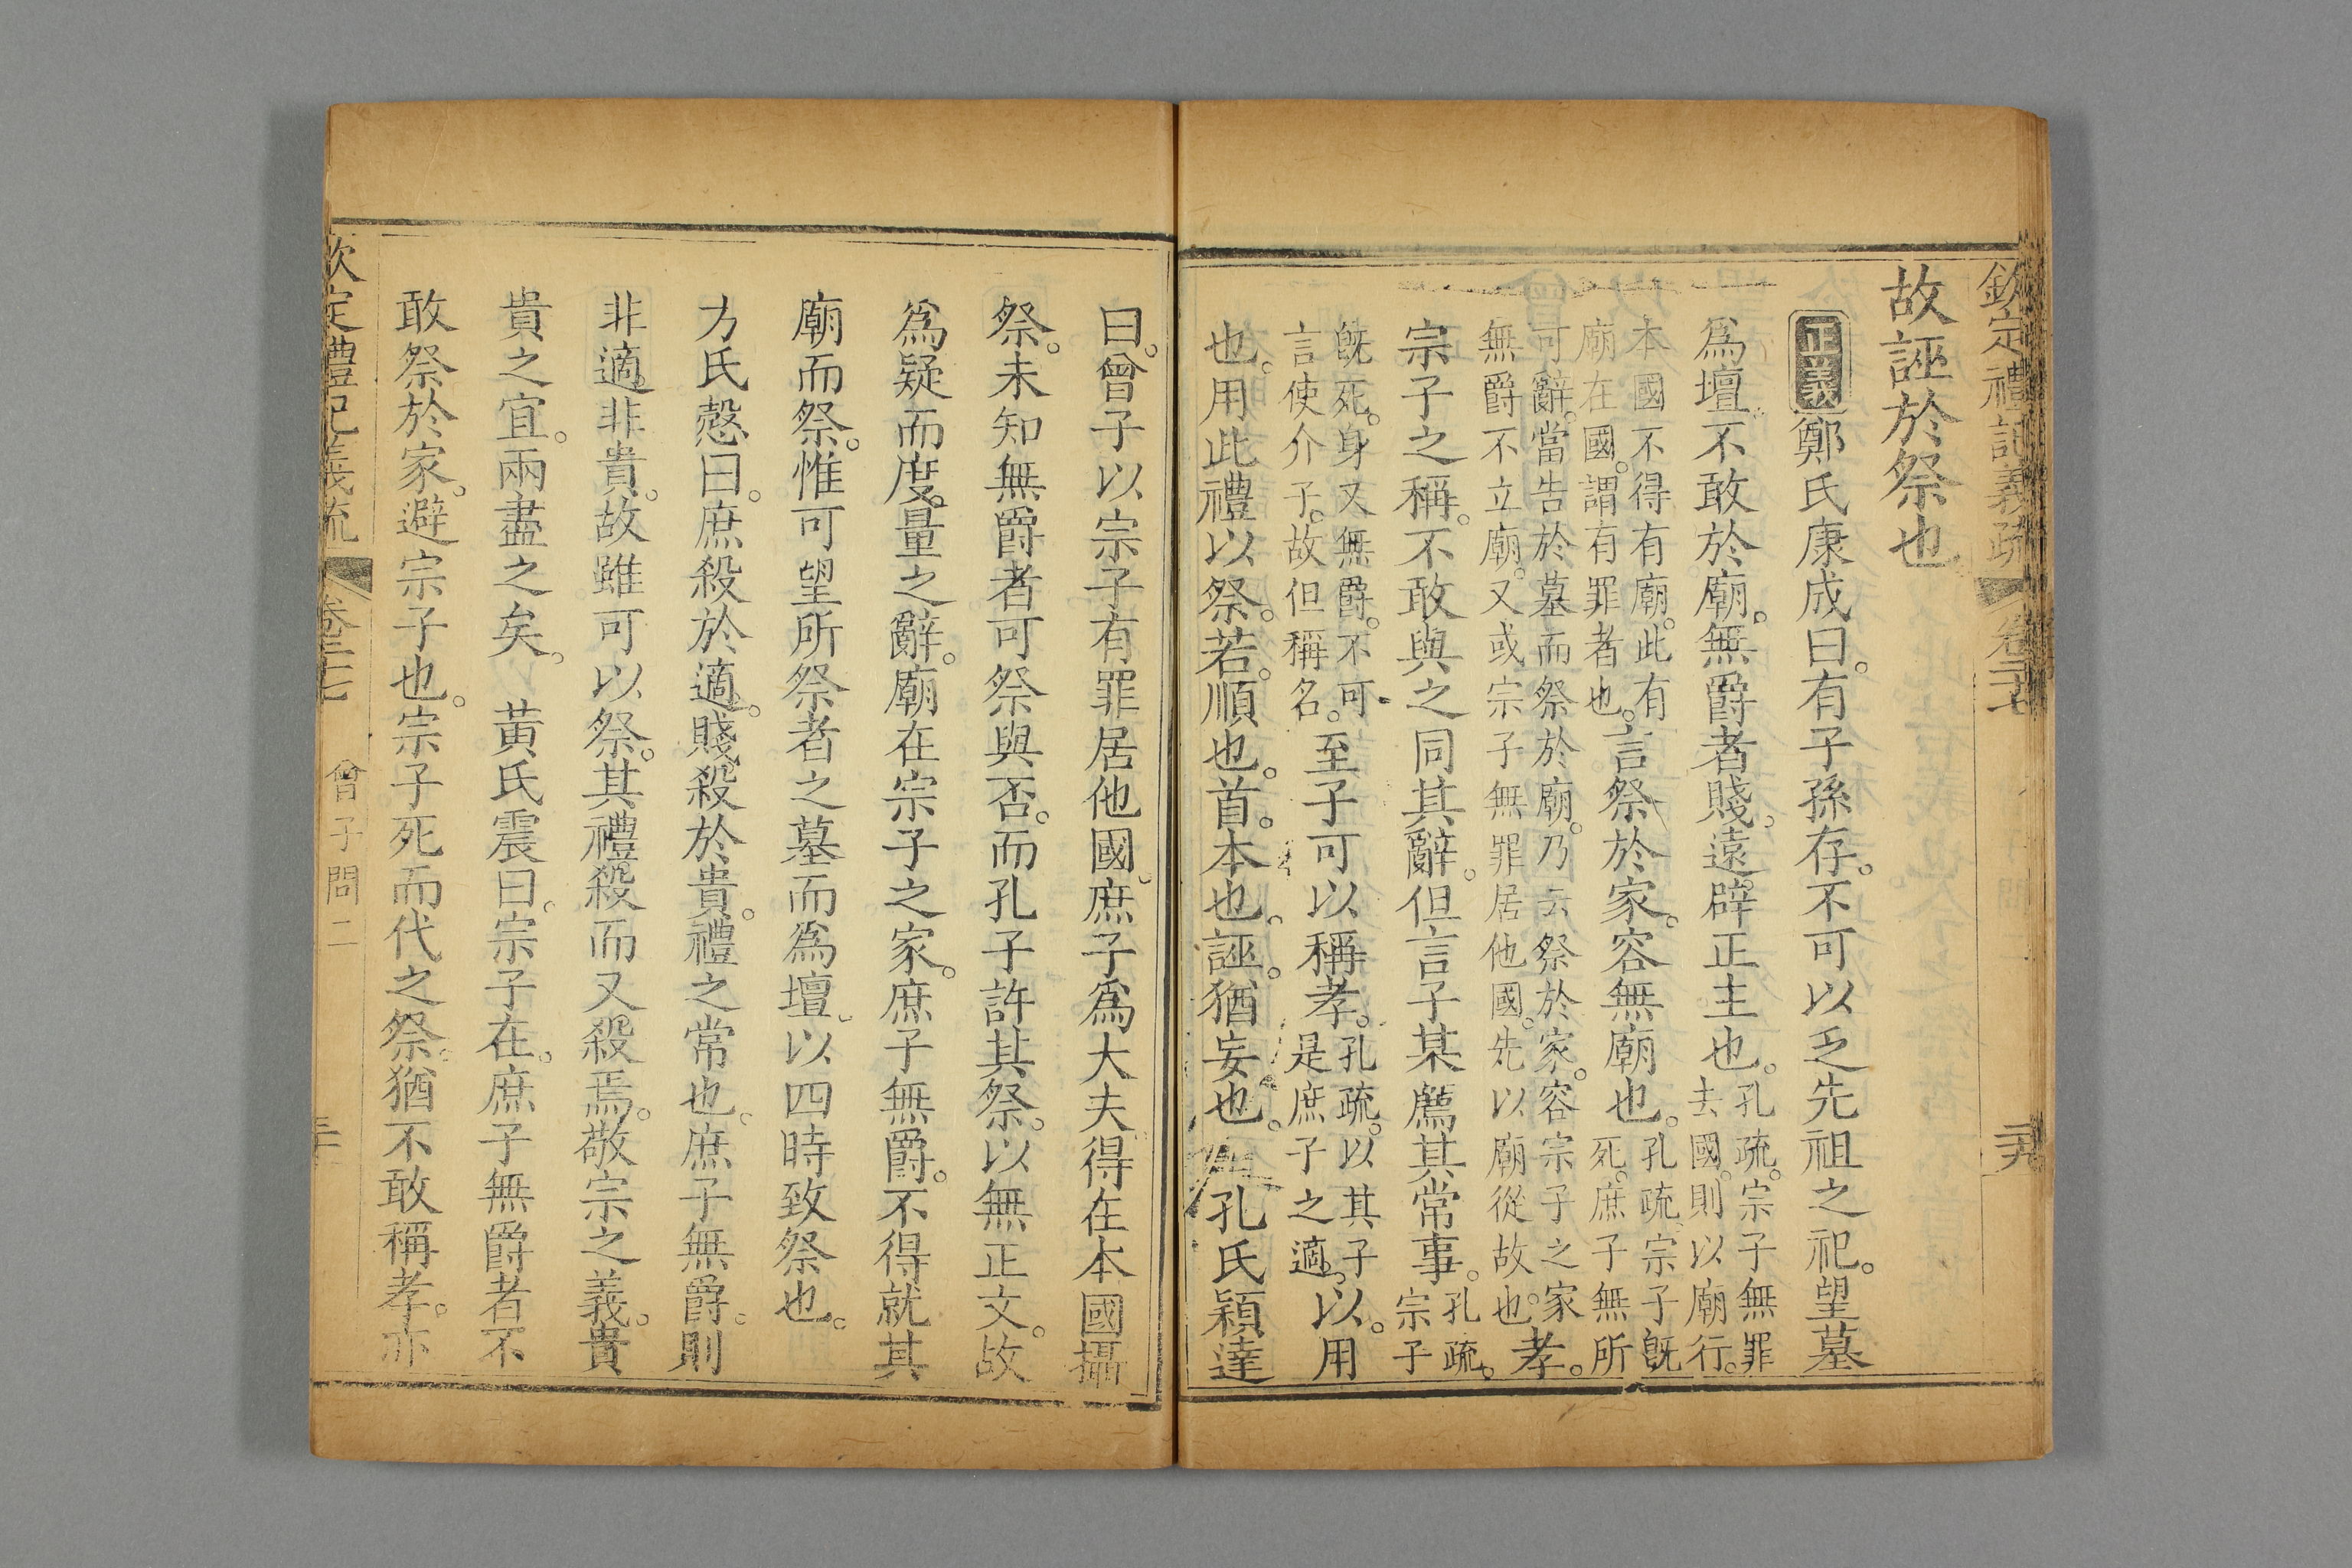 欽定禮記義疏 卷二十七 二十九
故誣於祭也
正義鄭氏康成曰。有子孫存。不可以乏先祖之祀。望墓
爲壇。不敢於廟。無爵者賤。遠辟正主也。孔疏。宗子無罪
去國。則以廟行。
本國不得有廟。此有
廟在國。謂有罪者也。言祭於家。容無廟也。孔疏。宗子旣
死。庶子無所
可辭。當告於墓而祭於廟。乃云祭於家。容宗子之家
無爵不立廟。又或宗子無罪居他國。先以廟從故也。孝。
宗子之稱。不敢與之同其辭。但言子某薦其常事。孔疏。
宗子
旣死。身又無爵。不可
言使介子。故但稱名。至子可以稱孝。孔疏。以其子
是庶子之適。以。用
也。用此禮以祭。若。順也。首。本也。誣。猶妄也。 孔氏穎達
曰。曾子以宗子有罪居他國。庶子爲大夫得在本國攝
祭。未知無爵者可祭與否。而孔子許其祭。以無正文。故
爲疑而度量之辭。廟在宗子之家。庶子無爵。不得就其
廟而祭。惟可望所祭者之墓而爲壇。以四時致祭也。
方氏慤曰。庶殺於適。賤殺於貴。禮之常也。庶子無爵。則
非適非貴。故雖可以祭。其禮殺而又殺焉。敬宗之義。貴
貴之宜。兩盡之矣。 黃氏震曰。宗子在。庶子無爵者不
敢祭於家。避宗子也。宗子死而代之祭。猶不敢稱孝。亦
欽定禮記義疏 卷二十七 曾子問二 三十